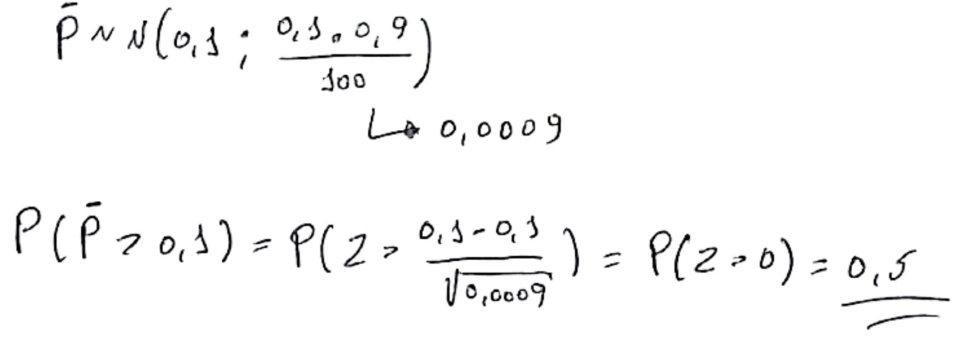 P̄ ~ N(0,1 ; 0,1 . 0,9 / 100)
↳ 0,0009
P(P̄ > 0,1) = P(Z > (0,1 - 0,1) / √0,0009) = P(Z > 0) = 0,5